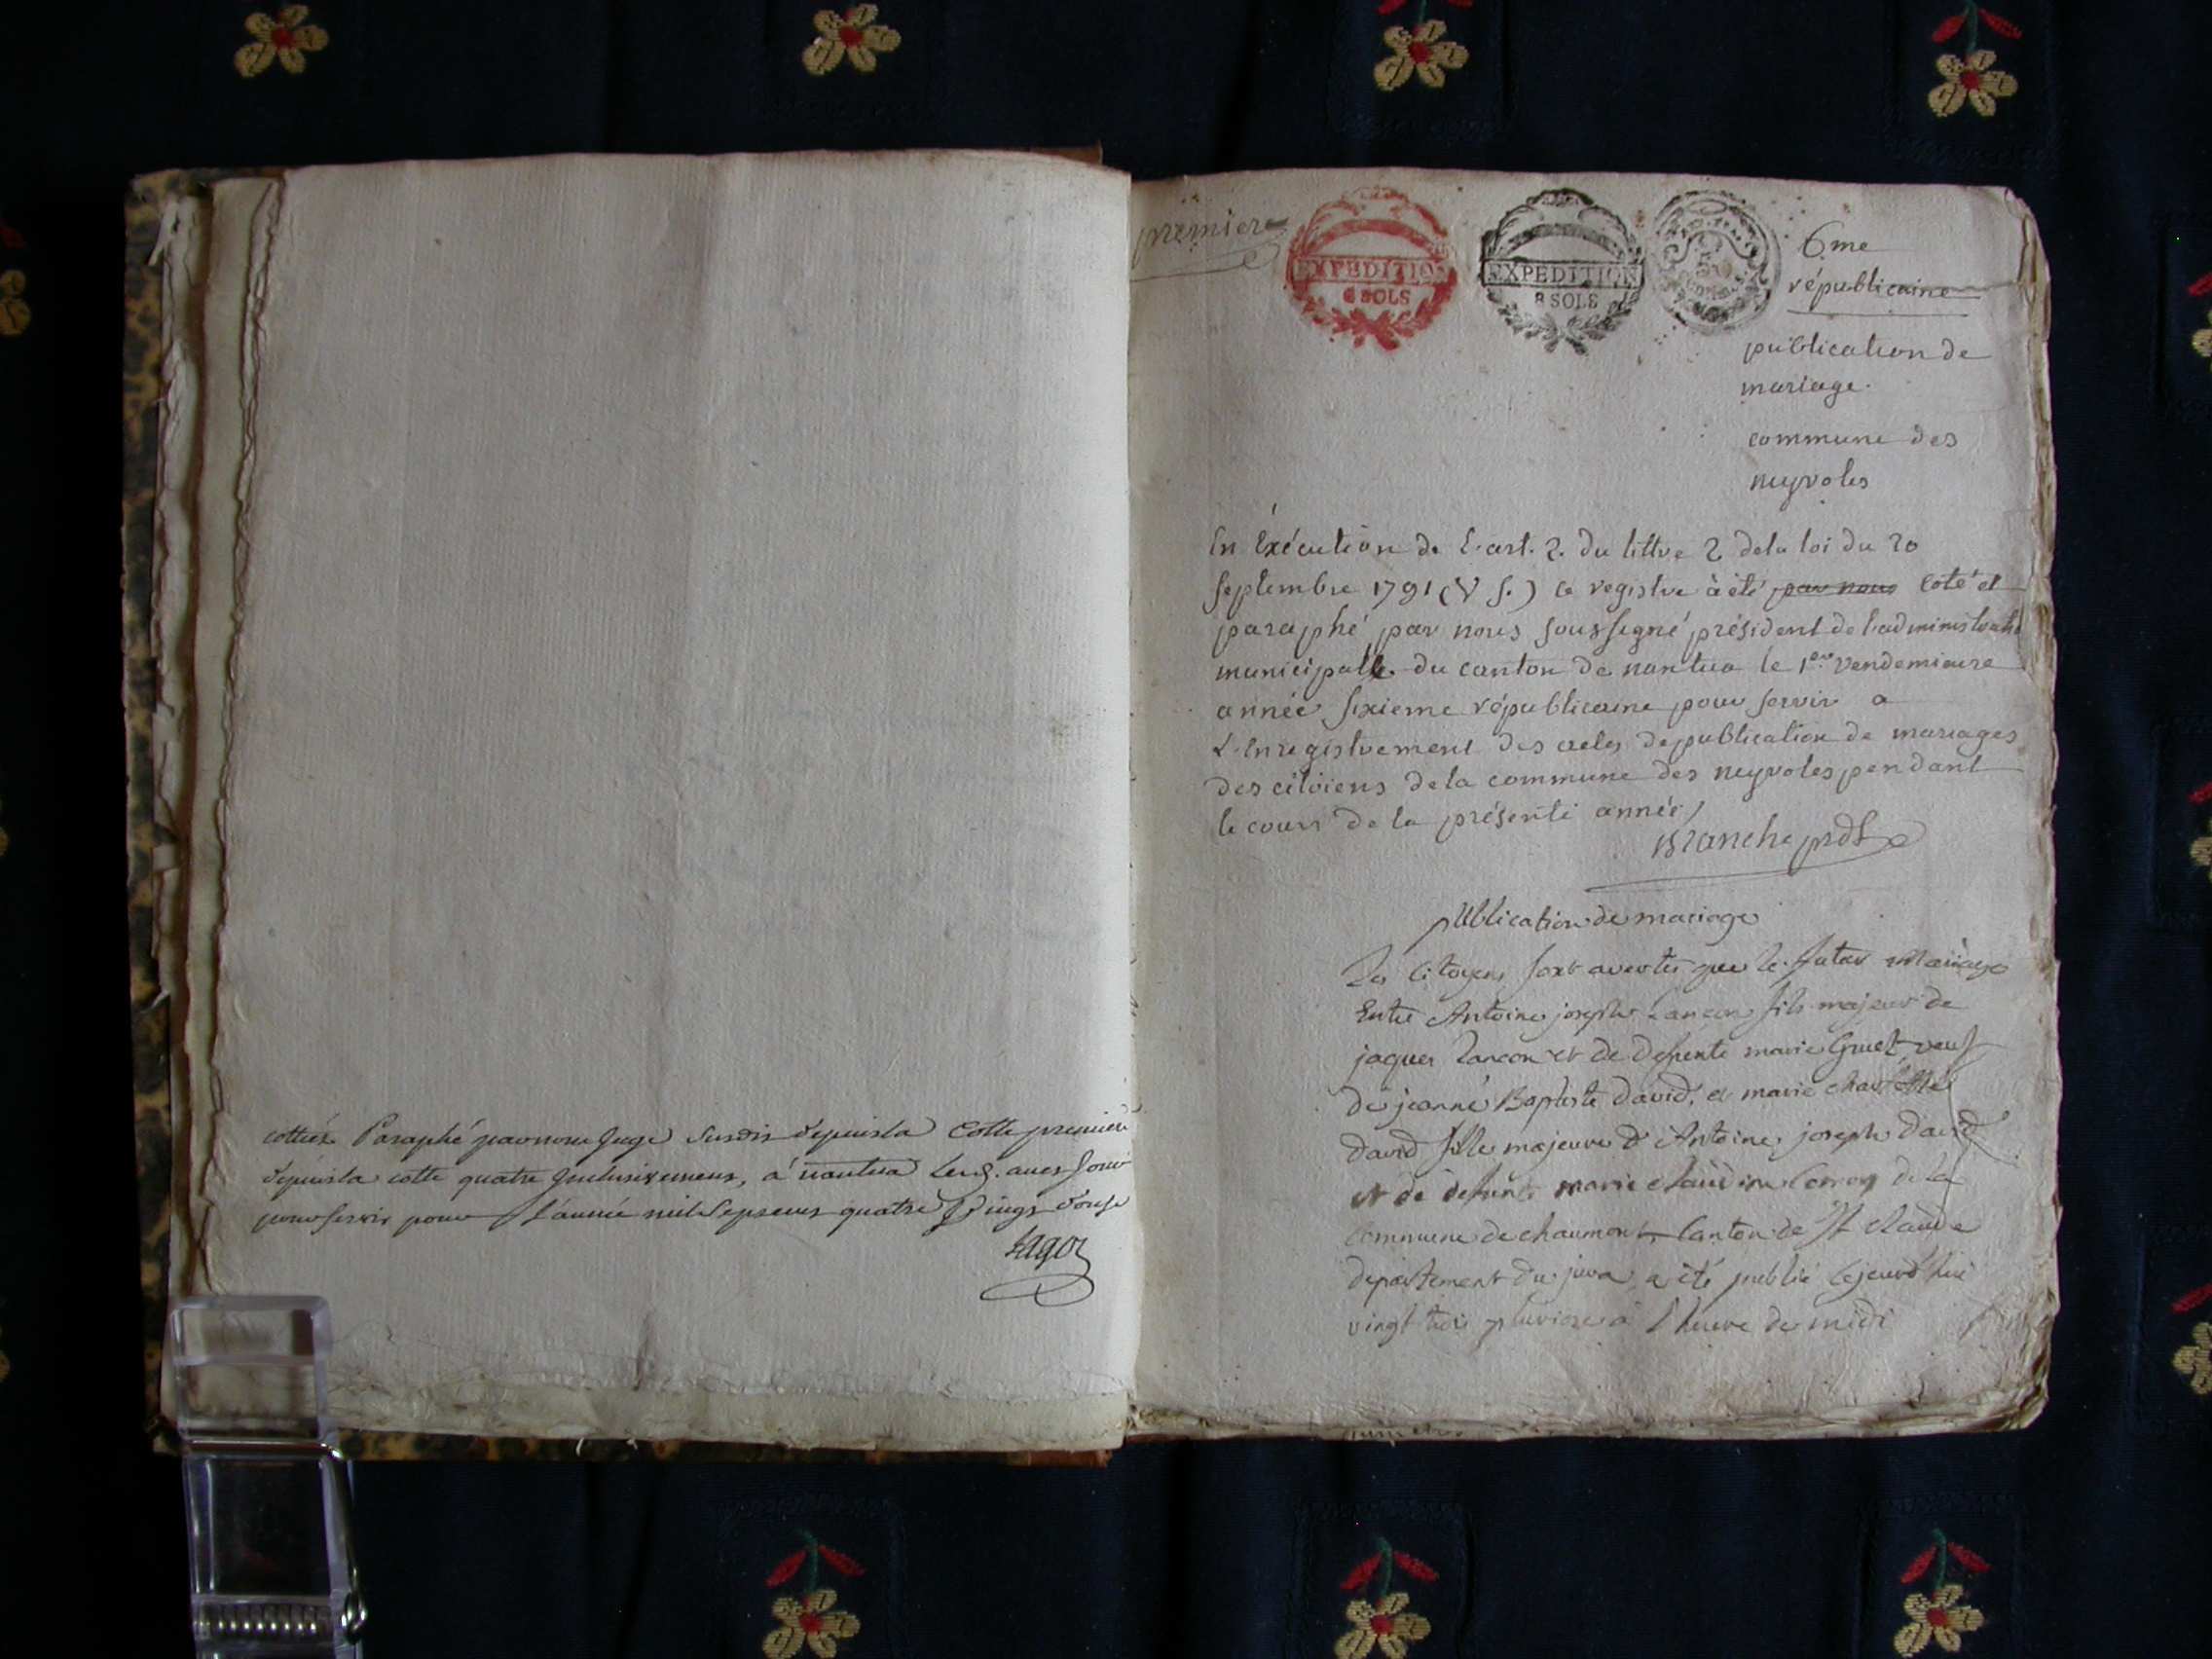 cottéé Paraphé par nous Juge Susdis depuis la Cotte premiere
depuis la cotte quatre Inclusivement, à nantua
pour servir pour L'année mil Sept cens quatre Vingt donze
Lagoz
premiere
EXPEDITION
6 SOLS
EXPEDITION
8 SOLS
6me
républicaine
publication de
mariage.
commune des
neyroles
En Exécution de l'art. 2. du tittre 2 de la loi du 20
Septembre 1791 (V S.) ce registre à été par nous coté et
paraphé par nous soussigné président de l'administratio
municipalle du canton de nantua le 1er vendemiaire
année sixieme républicaine pour servir a
L'enregistrement des actes de publication de mariages
des citoiens de la commune des neyroles pendant
le cours de la présente année /
Blanche prdt
publication de mariage
Les Citoyens sont avertis que le futur Mariage
Entre Antoine joseph Lançon fils majeur de
jaques Lancon et de defunte marie Gruet veuf
de jeanne Baptiste david, et marie
david fille majeure d'Antoine joseph david
et de defunte marie claudine de la
Commune de chaumont, Canton de St Claude
departement du jura a été publié cejourd'hui
vingt trois pluviose à l'heure de midi